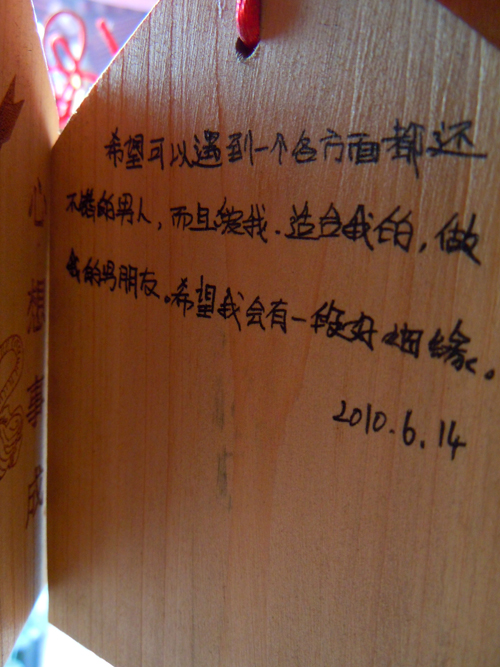 希望可以遇到一个各方面都还
不错的男人，而且爱我．适合我的，做
我的男朋友。希望我会有一段好姻缘。
2010.6.14
心想事成